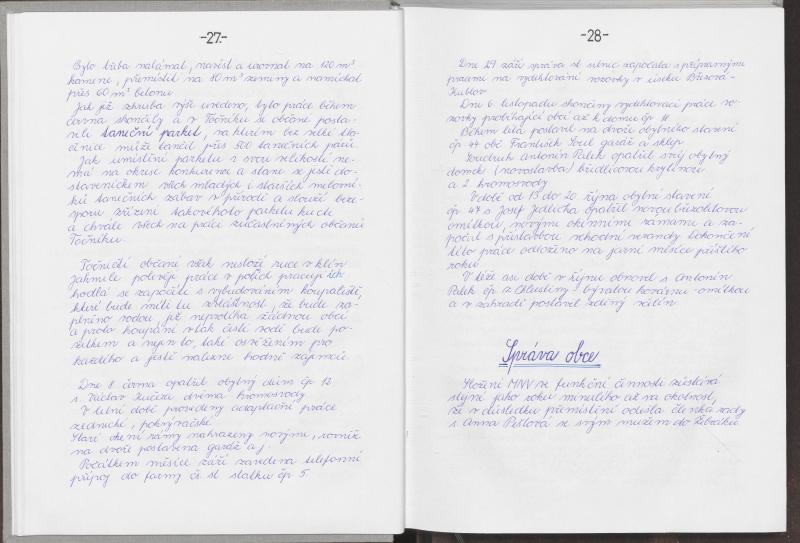 -27.-
Bylo třeba nalámat, navést a urovnat na 120 m³
kamene, přemístit na 80 m³ zeminy a namíchat
přes 60 m³ betonu.
Jak již zhruba výše uvedeno, bylo práce během
června skončily a v Točníku si občané posta-
vili taneční parket, na kterém bez velké tla-
čenice může tančit přes 500 tanečních párů.
Jak umístění parketu i svou velikostí ne-
má na okrese konkurenci a stane se jistě do-
staveníčkem všech mladých i starších milovní-
ků tanečních zábav v přírodě a slouží bez-
sporu zřízení takového to parketu ku cti
a chvále všech na práci zúčastněných občanů
Točníku.
Točničtí občané však nesloží ruce v klín
Jakmile poleví práce v polích pracují cích
hodlá se započíti s vybudováním koupaliště,
které bude míti tu zvláštnost, že bude na-
pájeno vodou, jež neprotéká žádnou obcí
a proto koupání v tak čisté vodě bude po-
žitkem a nejen to, také osvěžením pro
každého a jistě nalezne hodně zájemců.
Dne 8 června opatřil obytný dům čp 12
s. Václav Kučera dvěma hromosvody
V letní době provedeny adaptační práce
zednické, pokrývačské
Staré okenní rámy nahrazeny novými, rovněž
na dvoře postavena garáž aj
Počátkem měsíce září zavedena telefonní
přípoj do farmy čs st statku čp 5
-28-
Dne 29 září správa st silnic započala s přípravnými
pracemi na vydlažování vozovky v úseku Březová-
Kublov
Dne 6 listopadu skončeny vydlažovací práce vo-
zovky probíhající obcí až k domu čp 11
Během léta postavil na dvoře obytného stavení
čp 44 obč František Soul garáž a sklep
Soudruh Antonín Palek opatřil svůj obytný
domek (novostavba) břidlicovou krytinou
a 2 hromosvody
V době od 13 do 20 října obytné stavení
čp 47 s Josef Jedlička opatřil novou břízolitovou
omítkou, novými okenními rámami a za-
počal s přístavbou vchodní verandy Dokončení
této práce odloženo na jarní měsíce příštího
roku
V téže asi době v říjnu obnovil s Antonín
Palek čp 2 bývalou kovárnu - omítkou
a v zahradě postavil zděný
Správa obce
Složení MNV ve funkční činnosti zůstává
stejné jako roku minulého až na okolnost,
že v důsledku přemístění odešla členka rady
s Anna Pištova se svým mužem do Žebráku